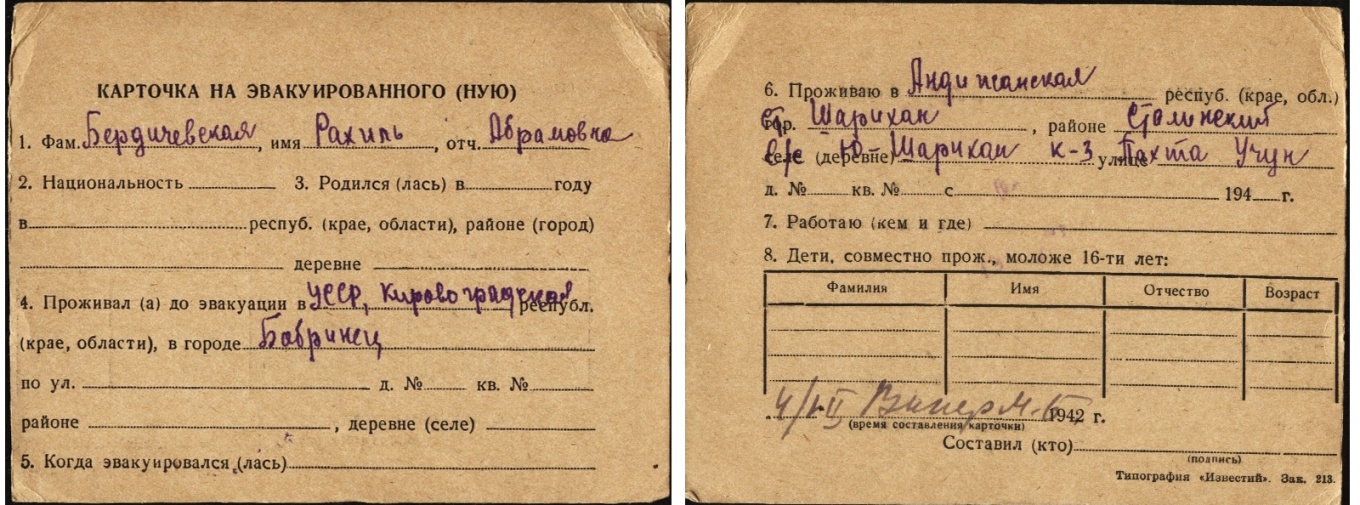 КАРТОЧКА НА ЭВАКУИРОВАННОГО (НУЮ)
1. Фам. Бердичевская, имя Рахиль, отч. Абрамовна
2. Национальность 3. Родился (лась) в году
в респуб. (крае, области), районе (город)
деревне
4. Проживал (а) до эвакуации в УССР, Кировоградская республ.
(крае, области), в городе Бобринец
по ул. д. № кв. №
районе , деревне (селе)
5. Когда эвакуировался (лась)
6. Проживаю в Андижанская респуб. (крае, обл.)
гор. Шарихан , районе Сталинский
селе (деревне) Ю-Шарихан к-з улице Пахта Учун
д. № кв. № с 194 г.
7. Работаю (кем и где)
8. Дети, совместно прож., моложе 16-ти лет:
Фамилия Имя Отчество Возраст
1942 г.
(время составления карточки)
Составил (кто)
(подпись)
Типография «Известий». Зак. 213.